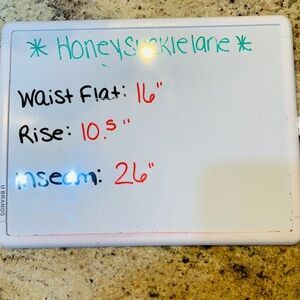 * Honeysucklelane *
Waist Flat: 16"
Rise: 10.5"
inseam: 26"
U BRANDS